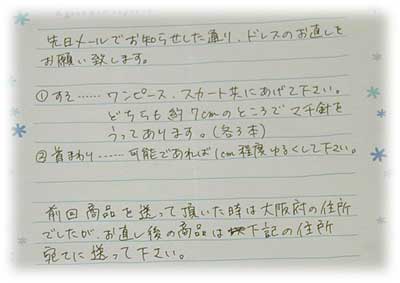 先日メールでお知らせした通り、ドレスのお直しを
お願い致します。
①すそ……ワンピース、スカート共にあげて下さい。
どちらも約7cmのところでマチ針を
うってあります。(各3本)
②首まわり……可能であれば1cm程度ゆるくして下さい。
前回商品を送って頂いた時は大阪府の住所
でしたが、お直し後の商品は下記の住所
宛てに送って下さい。